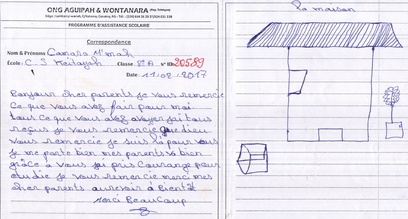 ONG AGUIPAH & WONTANARA
PROGRAMME D'ASSISTANCE SCOLAIRE
Correspondance
Nom & Prénoms Camara M'mah
École: C. S. Classe: 8e A N° ID: 20589
Date: 11-02-2017
Bonjour cher parents je vous remercie
Ce que vous avez fair pour moi
tous ce que vous avez
reçus je vous remercie que dieu
vous remercie je suis là pour vous
je me porte bien mes parents va bien
grâce à vous courange pour
je vous remercie merci mes
cher parents aurevoir à bientôt
Merci BeauCoup
ma maison